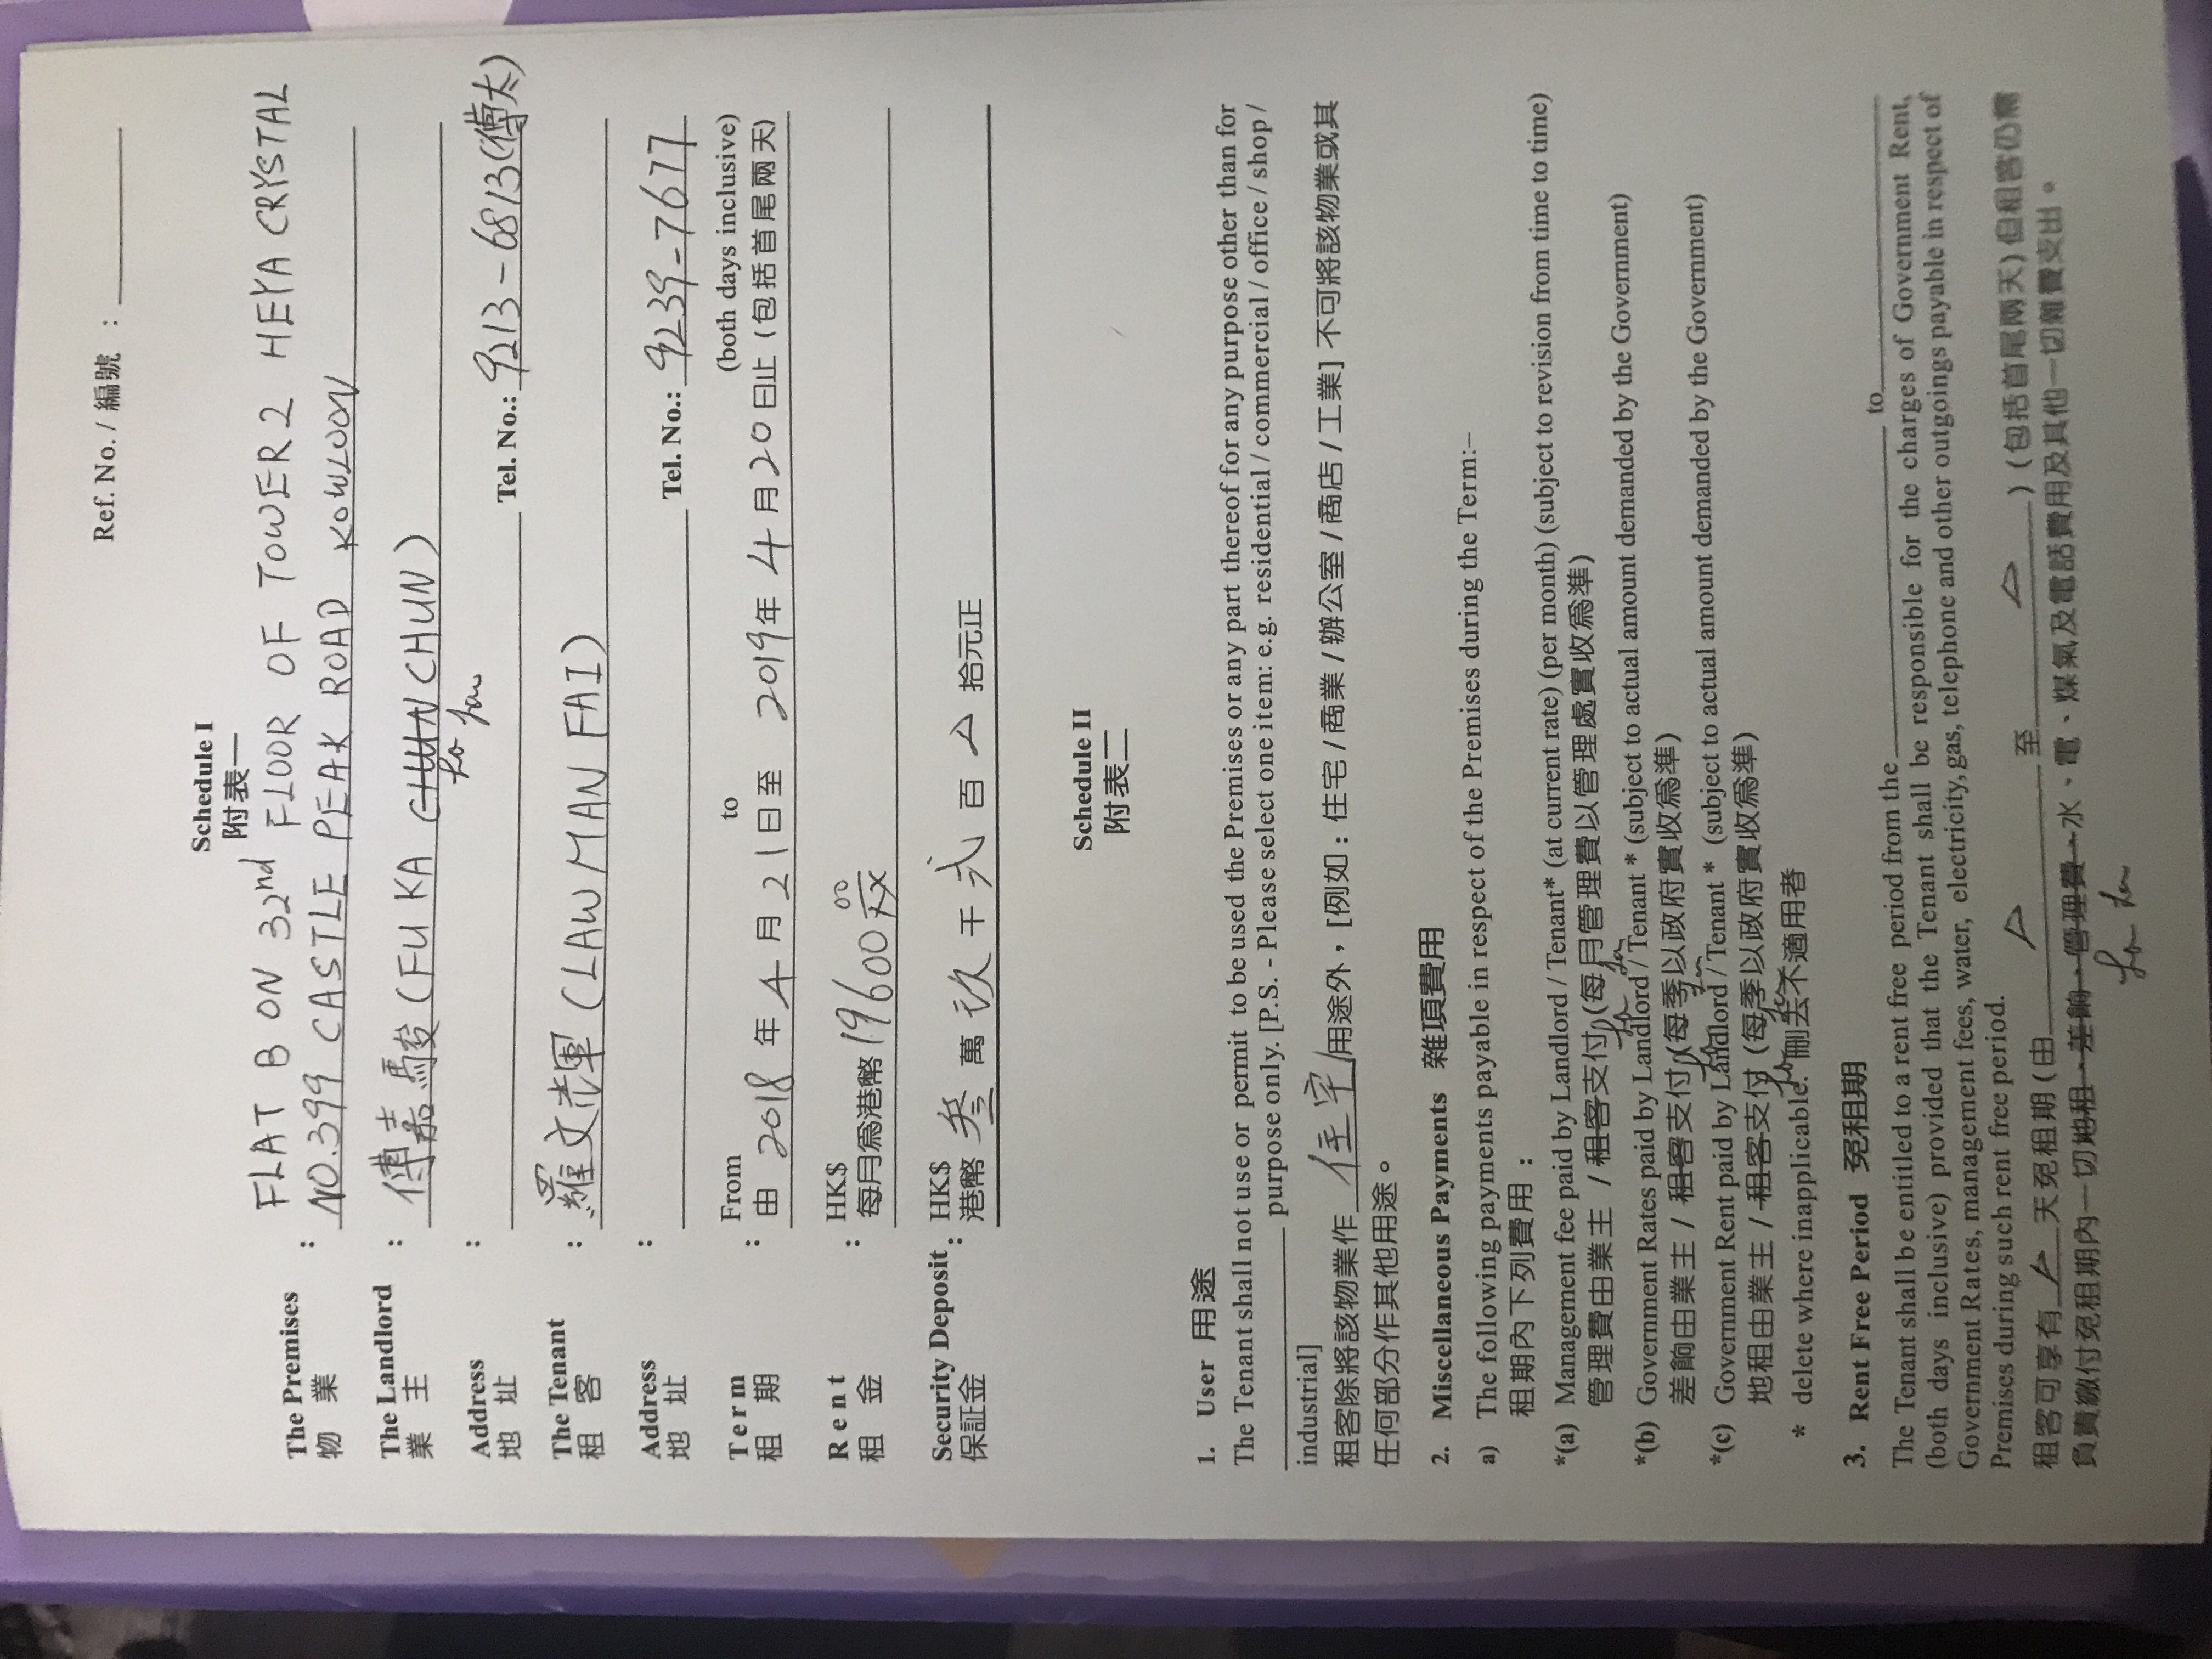 Ref. No. / 編號 :
Schedule I
附表一
The Premises : FLAT B ON 32nd FLOOR OF TOWER 2 HEYA CRYSTAL
物 業 NO.399 CASTLE PEAK ROAD KOWLOON
The Landlord : 傅嘉駿 (FU KA CHUN CHUN)
業 主
Address : Tel. No.: 9213-6813(傅太)
地 址
The Tenant : 羅文輝 (LAW MAN FAI)
租 客
Address : Tel. No.: 9239-7677
地 址
Term : From to (both days inclusive)
租 期 由 2018 年 4 月 21 日至 2019年 4 月 20 日止 (包括首尾兩天)
Rent : HK$
租 金 每月為港幣 19600 00/XX
Security Deposit : HK$
保証金 港幣 叁 萬 玖 千 弍 百 △ 拾元正
Schedule II
附表二
1. User 用途
The Tenant shall not use or permit to be used the Premises or any part thereof for any purpose other than for
purpose only. [P.S. - Please select one item: e.g. residential / commercial / office / shop /
industrial]
租客除將該物業作 住宅 用途外，[例如：住宅 / 商業 / 辦公室 / 商店 / 工業] 不可將該物業或其
任何部分作其他用途。
2. Miscellaneous Payments 雜項費用
a) The following payments payable in respect of the Premises during the Term:–
租期內下列費用：
*(a) Management fee paid by Landlord / Tenant* (at current rate) (per month) (subject to revision from time to time)
管理費由業主 / 租客支付 (每月管理費以管理處實收為準)
*(b) Government Rates paid by Landlord / Tenant * (subject to actual amount demanded by the Government)
差餉由業主 / 租客支付 (每季以政府實收為準)
*(c) Government Rent paid by Landlord / Tenant * (subject to actual amount demanded by the Government)
地租由業主 / 租客支付 (每季以政府實收為準)
* delete where inapplicable. 刪去不適用者
3. Rent Free Period 免租期
The Tenant shall be entitled to a rent free period from the to
(both days inclusive) provided that the Tenant shall be responsible for the charges of Government Rent,
Government Rates, management fees, water, electricity, gas, telephone and other outgoings payable in respect of
Premises during such rent free period.
租客可享有 △ 天免租期 (由 △ 至 △ ) (包括首尾兩天) 但租客仍需
負責繳付免租期內一切地租、差餉、管理費、水、電、煤氣及電話費用及其他一切雜費支出。